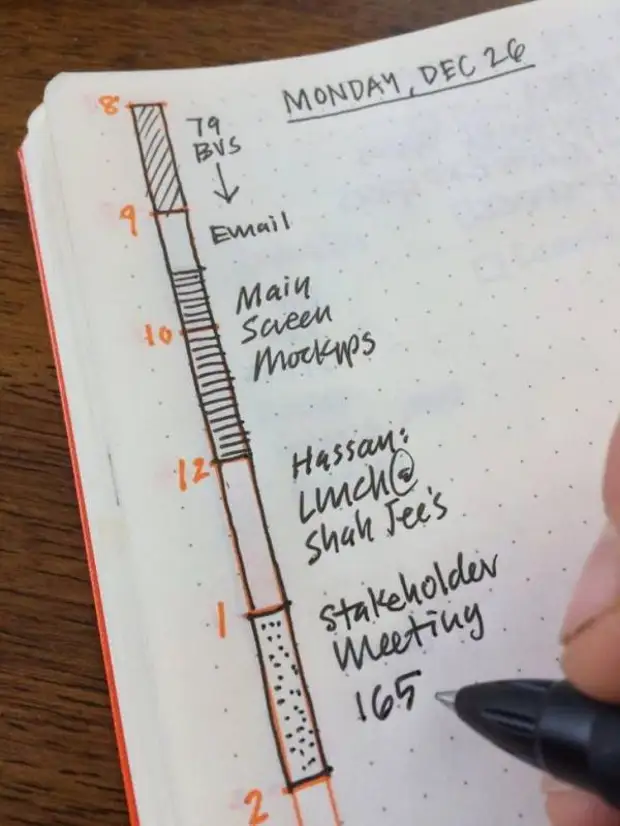 MONDAY, DEC 26
8
79
BVS
9
Email
Main
10
Screen
Mockups
12
Hassan:
Lunch @
Shah Jee's
1
Stakeholder
Meeting
165
2